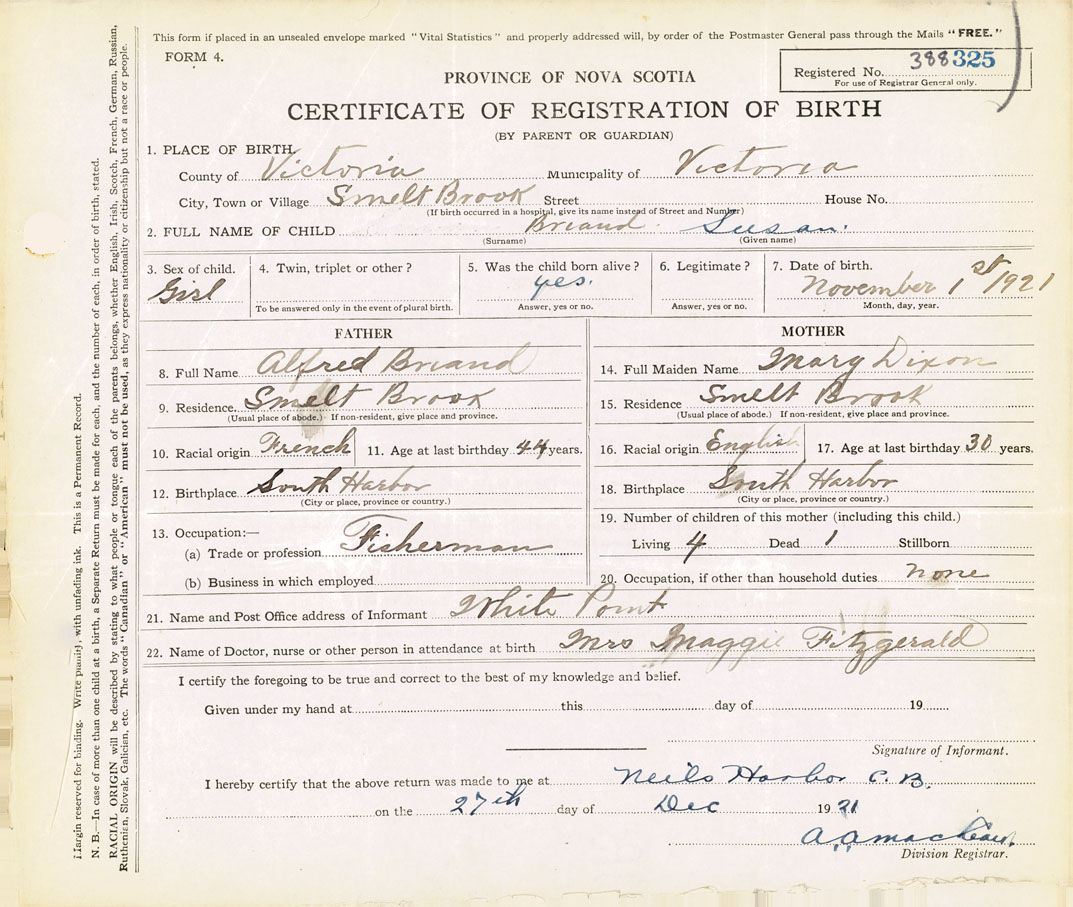 This form if placed in an unsealed envelope marked "Vital Statistics" and properly addressed will, by order of the Postmaster General pass through the Mails "FREE."
FORM 4.
Registered No. 388325
For use of Registrar General only.
PROVINCE OF NOVA SCOTIA
CERTIFICATE OF REGISTRATION OF BIRTH
(BY PARENT OR GUARDIAN)
1. PLACE OF BIRTH.
County of Victoria Municipality of Victoria
City, Town or Village Smelt Brook Street House No.
(If birth occurred in a hospital, give its name instead of Street and Number)
2. FULL NAME OF CHILD Briand Susan.
(Surname) (Given name)
3. Sex of child. 4. Twin, triplet or other? 5. Was the child born alive? 6. Legitimate? 7. Date of birth.
Girl yes. November 1st 1921
To be answered only in the event of plural birth. Answer, yes or no. Answer, yes or no. Month, day, year.
FATHER
8. Full Name Alfred Briand
9. Residence. Smelt Brook
(Usual place of abode.) If non-resident, give place and province.
10. Racial origin French 11. Age at last birthday 44 years.
12. Birthplace South Harbor
(City or place, province or country.)
13. Occupation:—
(a) Trade or profession Fisherman
(b) Business in which employed
MOTHER
14. Full Maiden Name Mary Dixon
15. Residence Smelt Brook
(Usual place of abode.) If non-resident, give place and province.
16. Racial origin English 17. Age at last birthday 30 years.
18. Birthplace South Harbor
(City or place, province or country.)
19. Number of children of this mother (including this child.)
Living 4 Dead 1 Stillborn
20. Occupation, if other than household duties none
21. Name and Post Office address of Informant White Point
22. Name of Doctor, nurse or other person in attendance at birth Mrs Maggie Fitzgerald
I certify the foregoing to be true and correct to the best of my knowledge and belief.
Given under my hand at this day of 19
Signature of Informant.
I hereby certify that the above return was made to me at Neils Harbor C.B.
on the 27th day of Dec 1921
A.A. MacLean.
Division Registrar.
Margin reserved for binding. Write plainly, with unfading ink. This is a Permanent Record.
N. B.—In case of more than one child at a birth, a Separate Return must be made for each, and the number of each, in order of birth, stated.
RACIAL ORIGIN will be described by stating to what people or tongue each of the parents belongs, whether English, Irish, Scotch, French, German, Russian,
Ruthenian, Slovak, Galician, etc. The words "Canadian" or "American" must not be used, as they express nationality or citizenship but not a race or people.